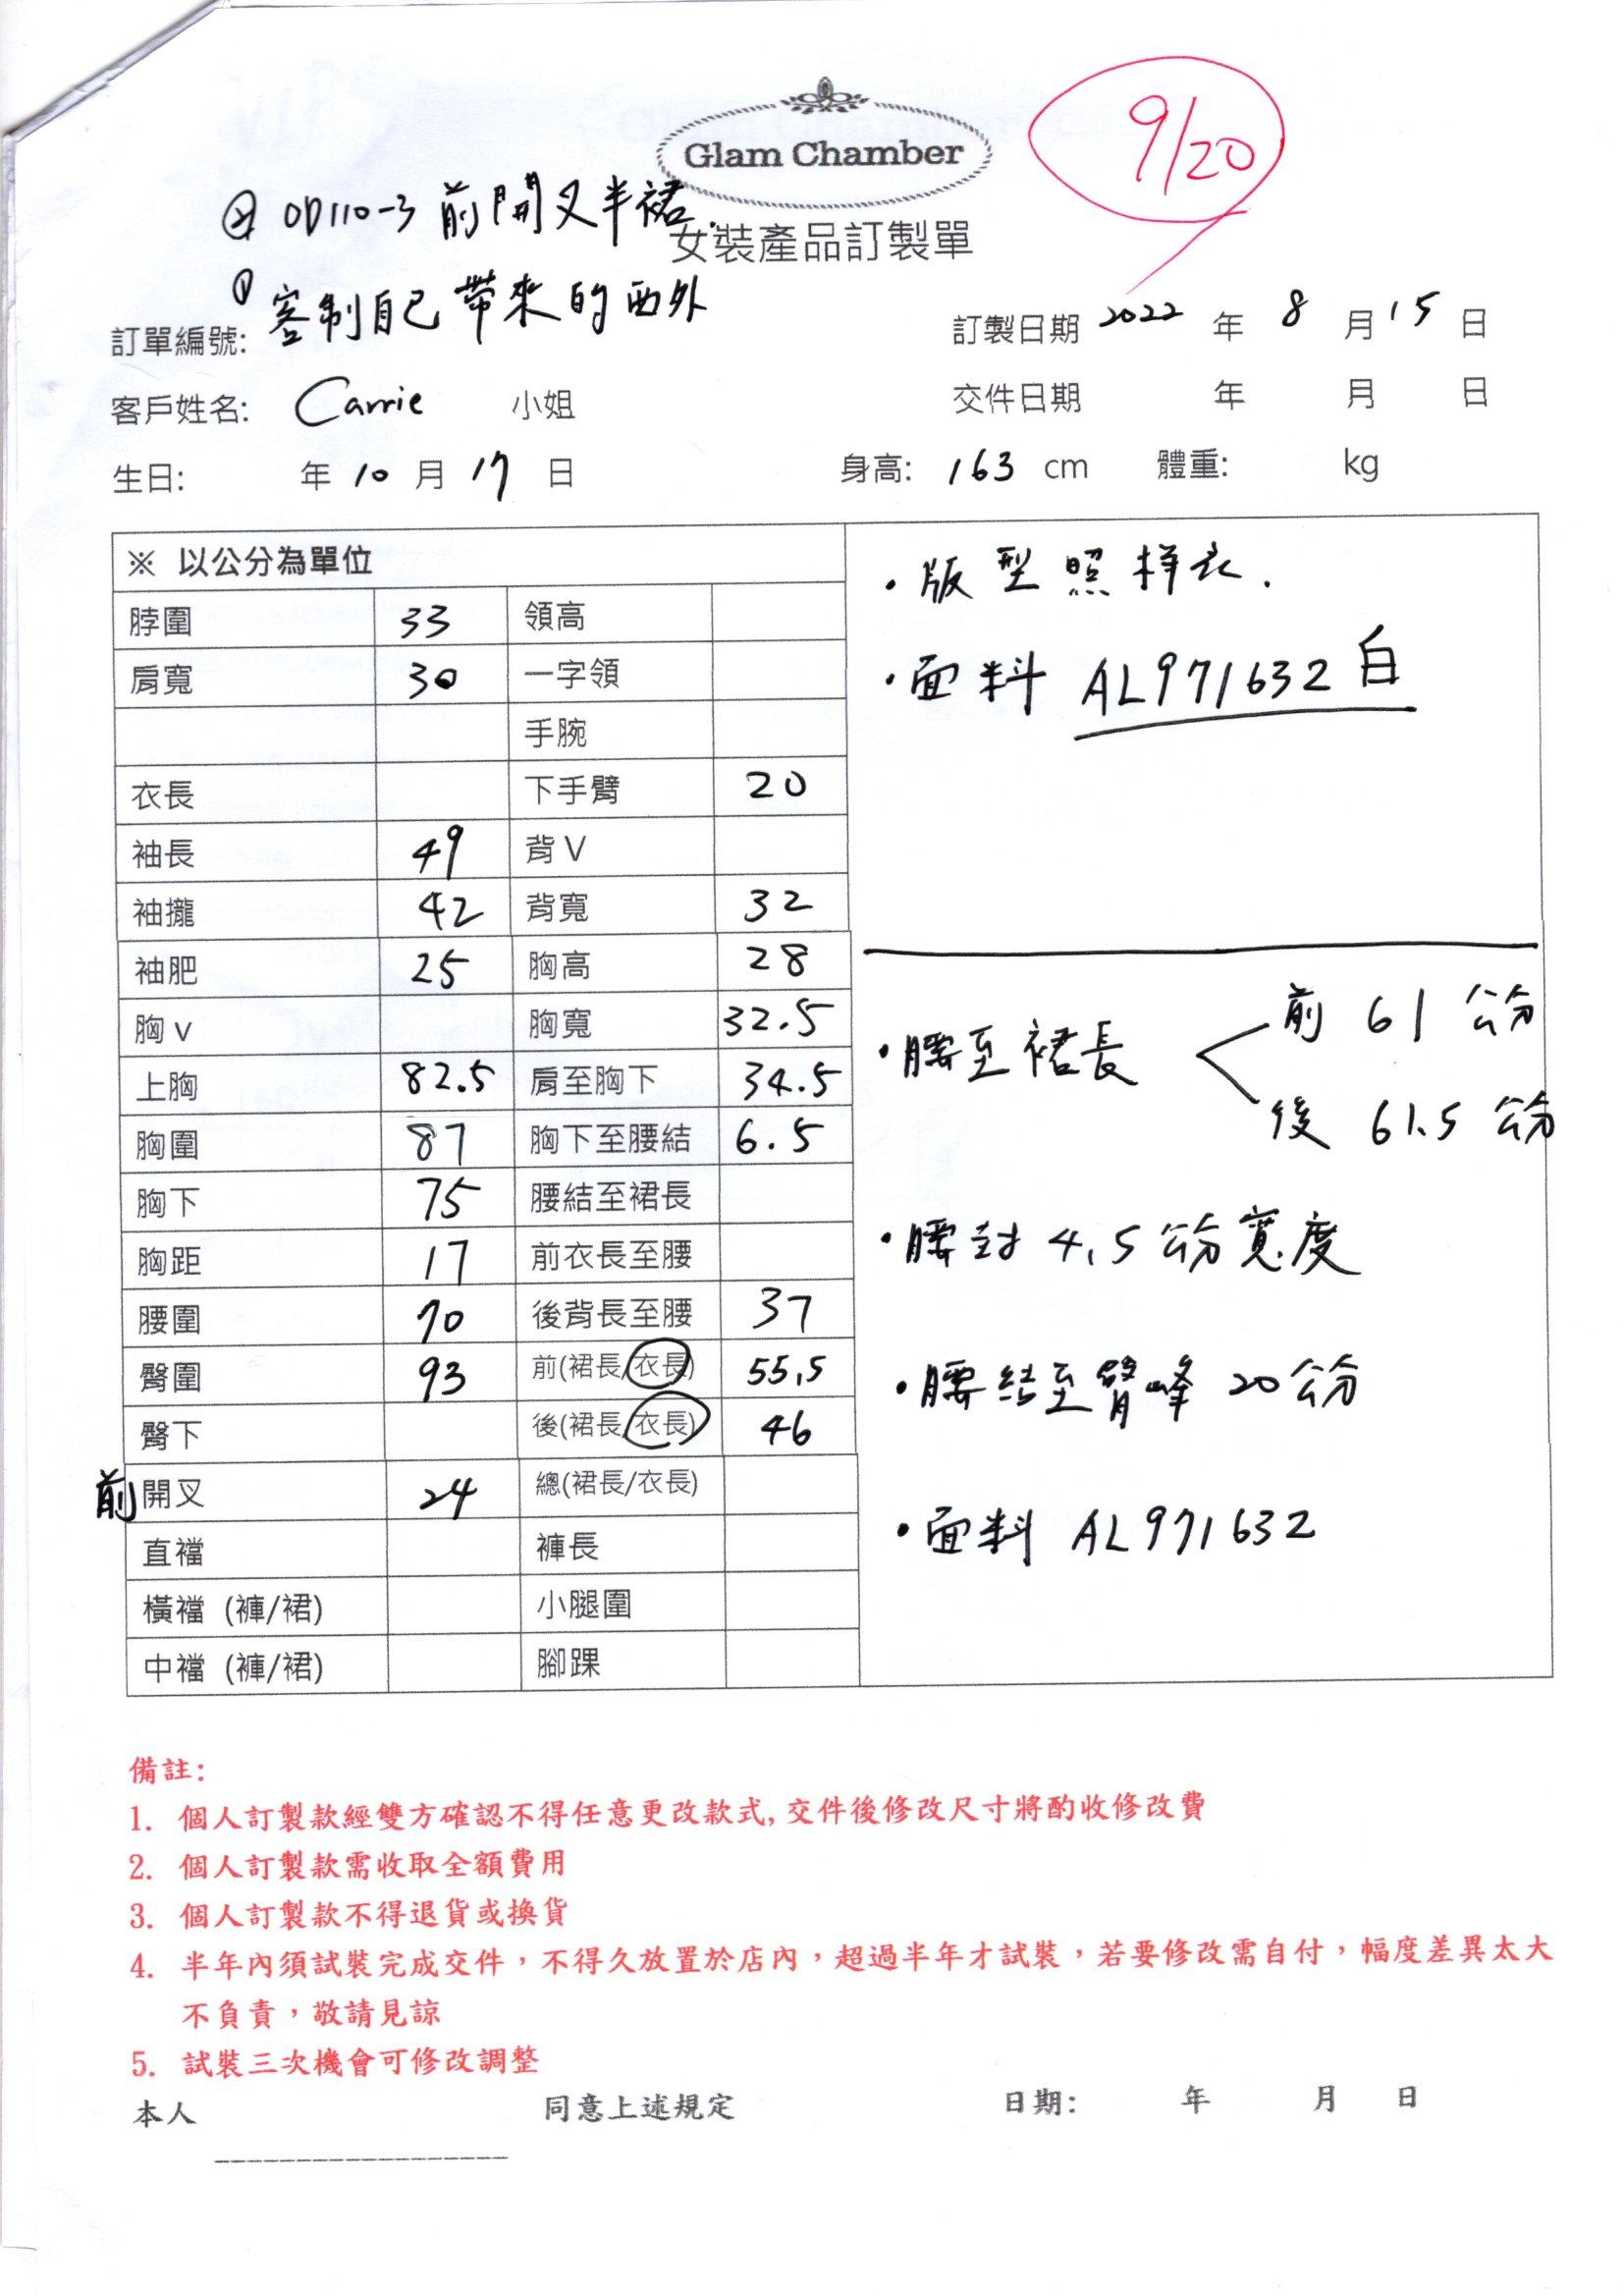 Glam Chamber
9/20
② OD110-3 前開叉半裙.
女裝產品訂製單
① 客制自己帶來的西外
訂單編號:
訂製日期 2022 年 8 月 15 日
客戶姓名: Carrie 小姐
交件日期 年 月 日
生日: 年 10 月 17 日
身高: 163 cm 體重: kg
※ 以公分為單位
脖圍 33 領高
肩寬 30 一字領
手腕
衣長 下手臂 20
袖長 49 背V
袖攏 42 背寬 32
袖肥 25 胸高 28
胸v 胸寬 32.5
上胸 82.5 肩至胸下 34.5
胸圍 87 胸下至腰結 6.5
胸下 75 腰結至裙長
胸距 17 前衣長至腰
腰圍 70 後背長至腰 37
臀圍 93 前(裙長/衣長) 55.5
臀下 後(裙長/衣長) 46
前 開叉 24 總(裙長/衣長)
直襠 褲長
橫襠 (褲/裙) 小腿圍
中襠 (褲/裙) 腳踝
・版型照样衣.
・面料 AL971632 白
・腰至裙長
前 61 公分
後 61.5 公分
・腰封 4.5 公分寬度
・腰結至臀峰 20 公分
・面料 AL971632
備註:
1. 個人訂製款經雙方確認不得任意更改款式, 交件後修改尺寸將酌收修改費
2. 個人訂製款需收取全額費用
3. 個人訂製款不得退貨或換貨
4. 半年內須試裝完成交件，不得久放置於店內，超過半年才試裝，若要修改需自付，幅度差異太大
不負責，敬請見諒
5. 試裝三次機會可修改調整
本人 同意上述規定 日期: 年 月 日